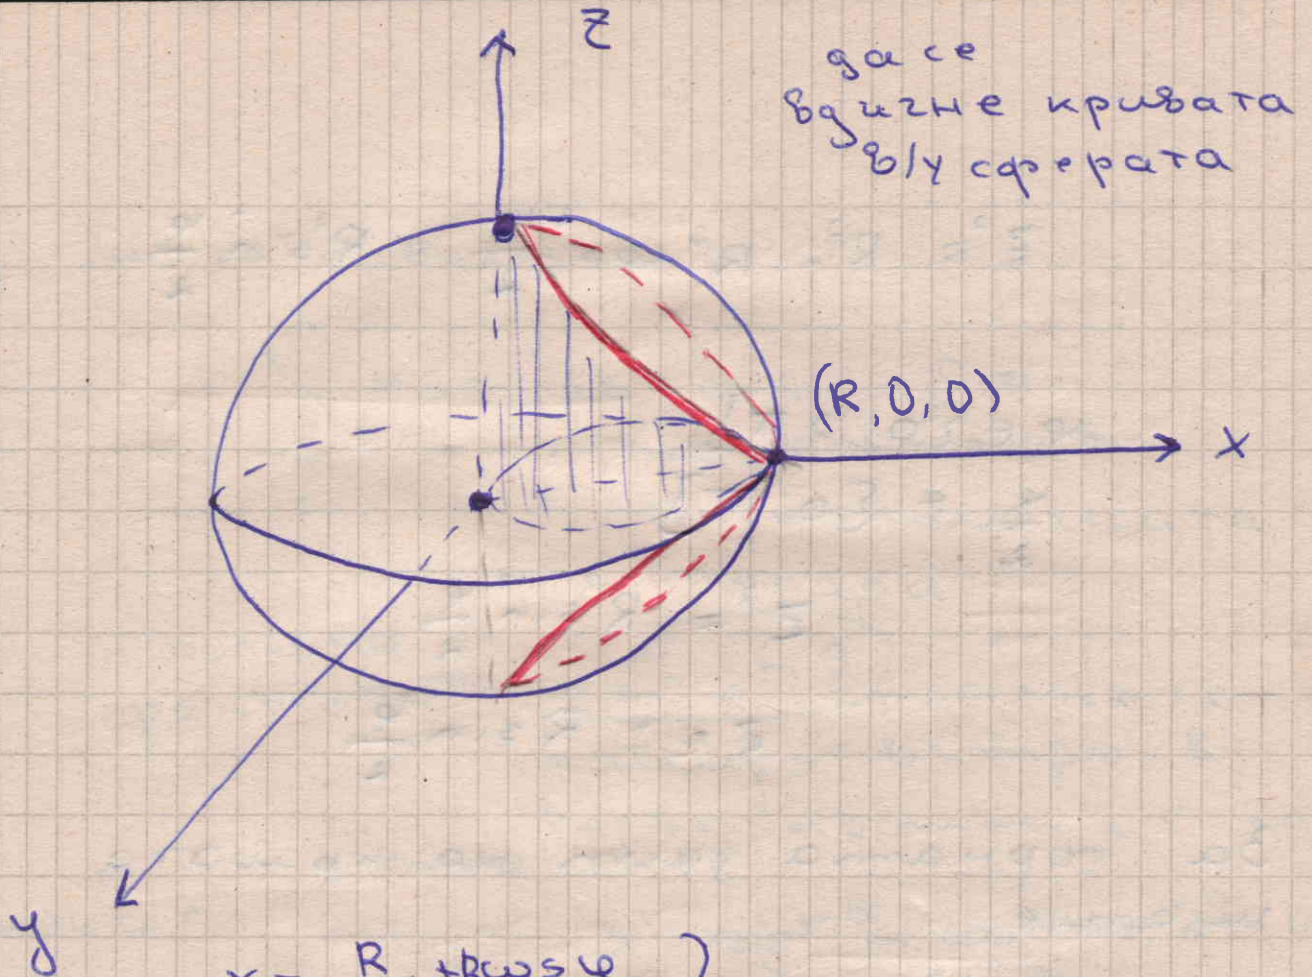 z
да се
вдигне кривата
в/у сферата
(R, 0, 0)
x
y
x = R + Rcos φ )